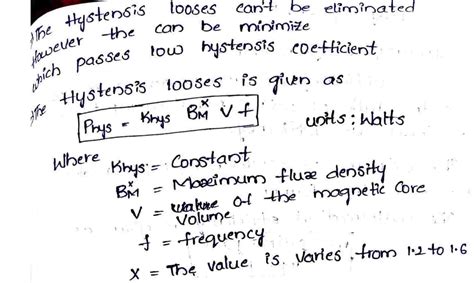 The Hystensis looses can't be eliminated
However the can be minimize
which passes low hystensis coefficient
The Hystensis looses is given as
Phys = Khys B_M^x V f units : Watts
Where Khys = Constant
B_M^x = Maximum fluxe density
V = Volume of the magnetic core
f = frequency
X = The value is varies from 1.2 to 1.6